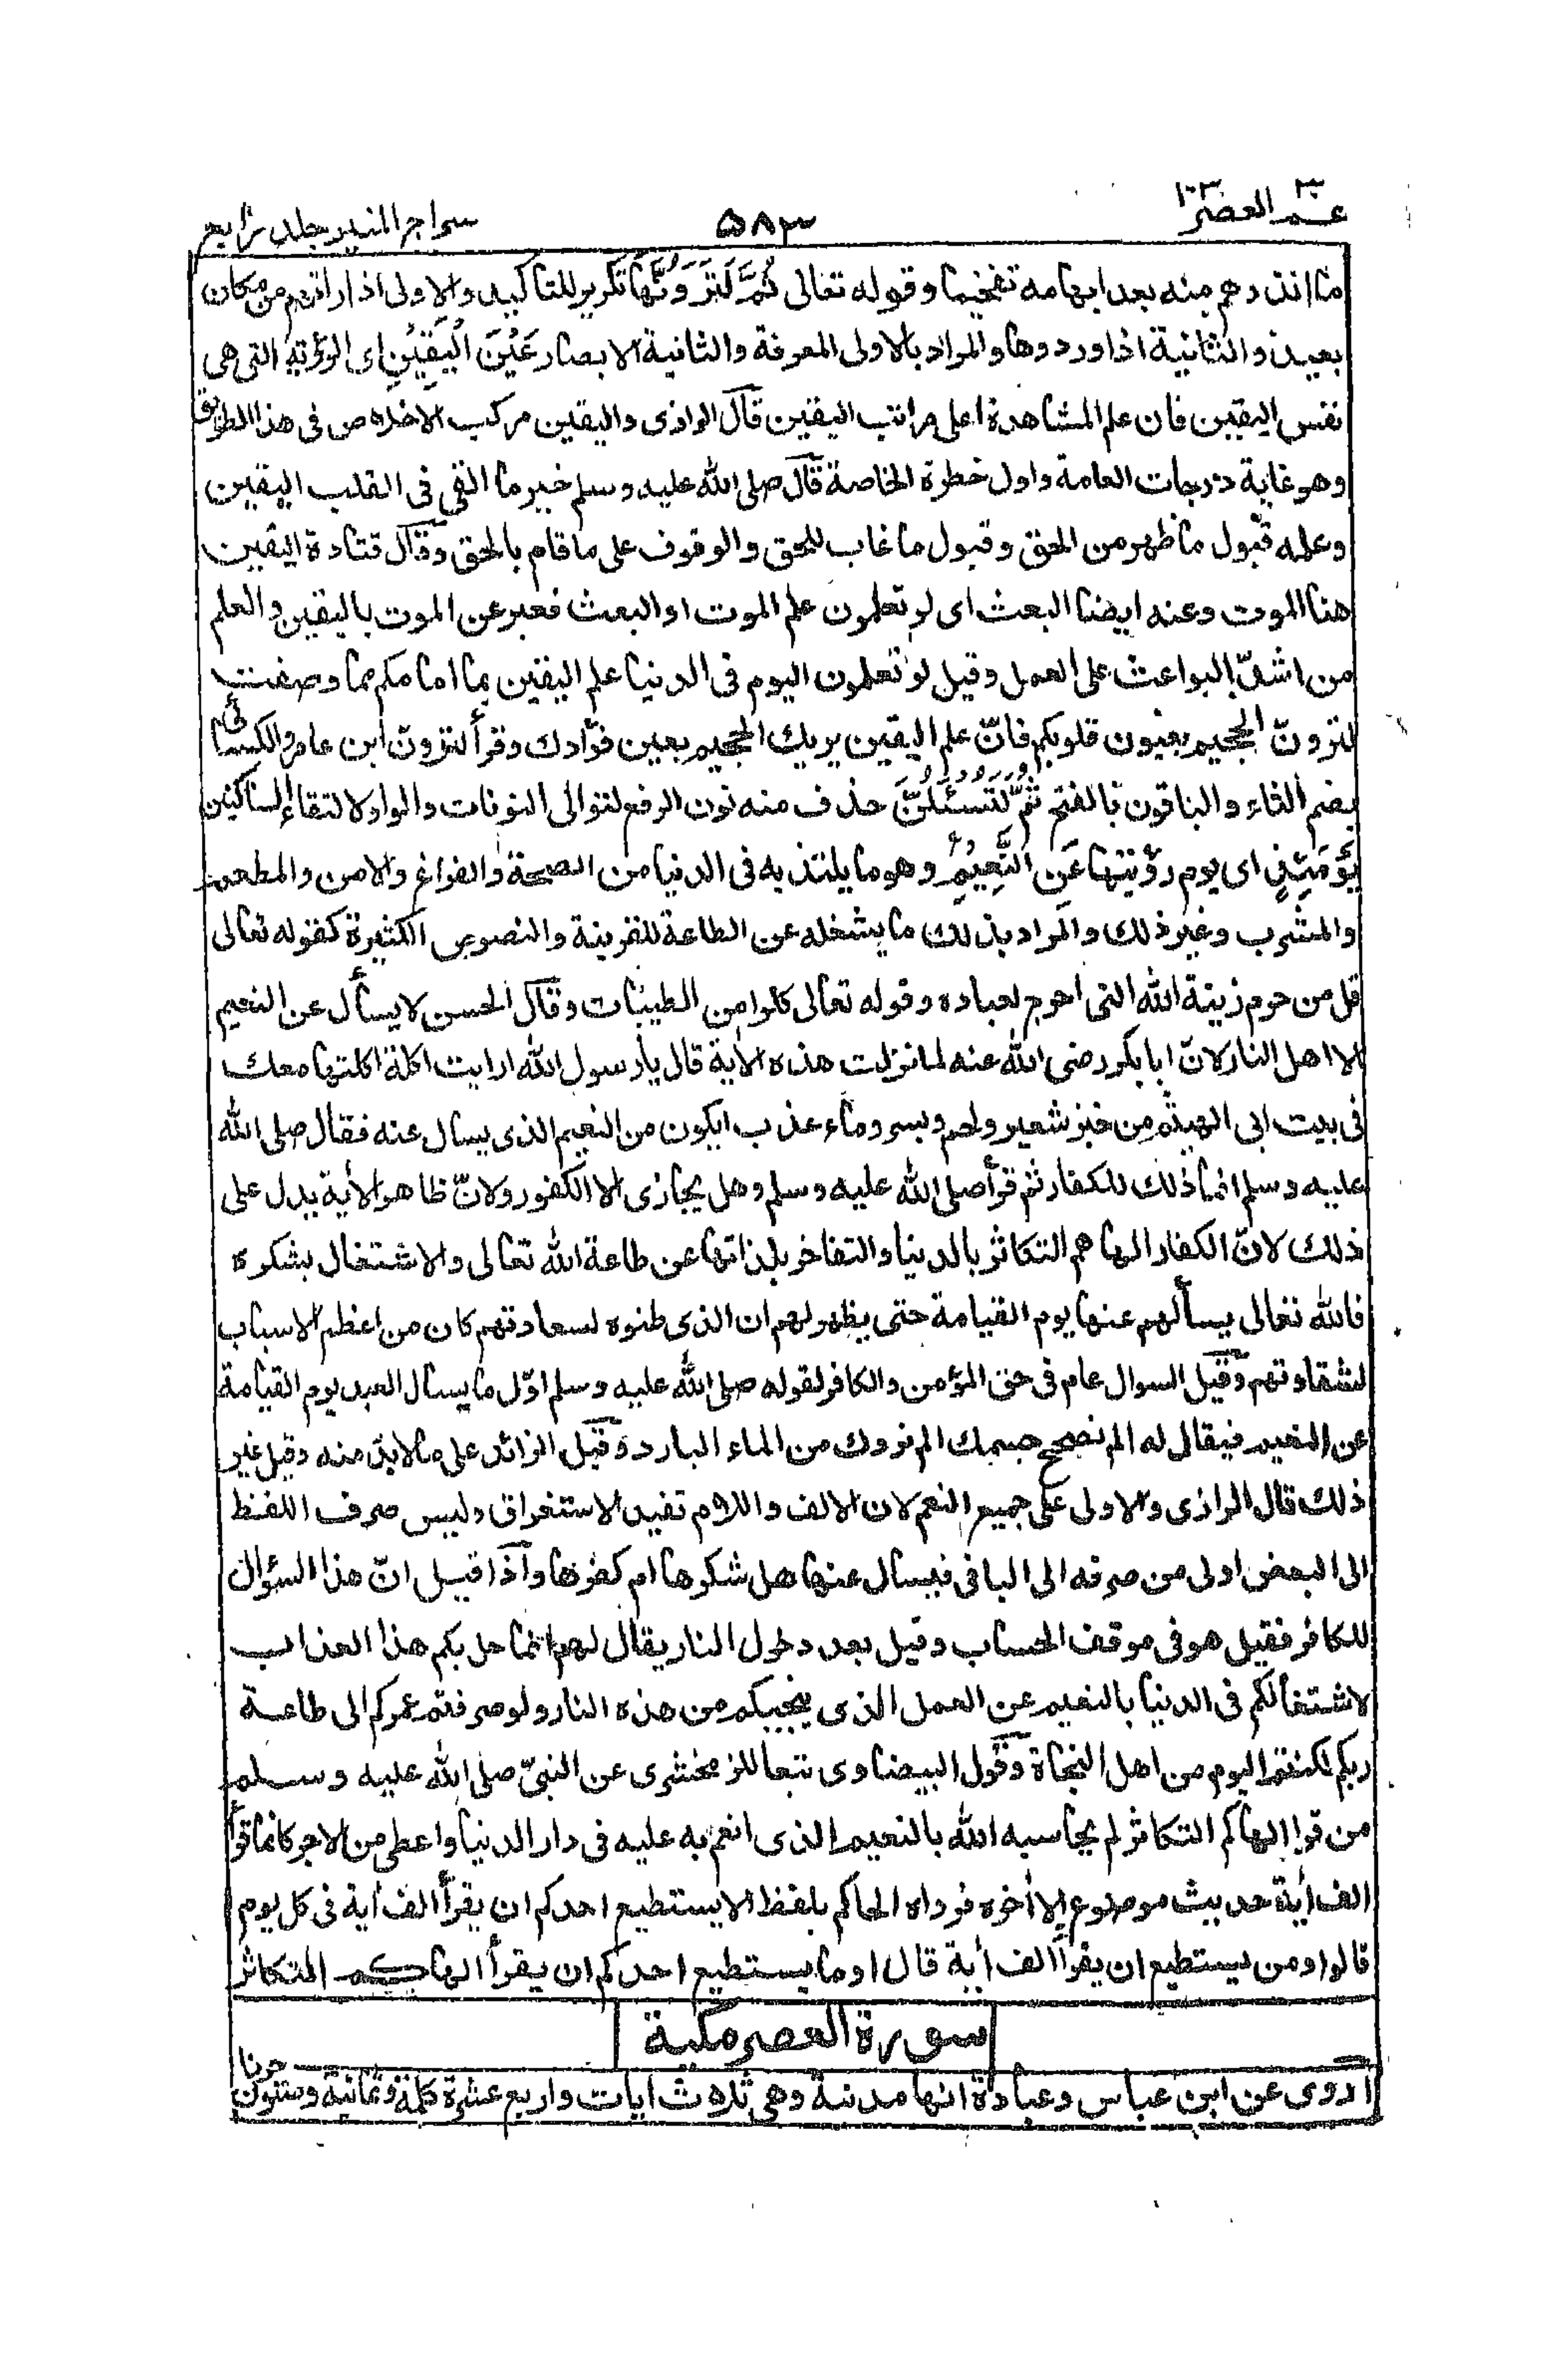 عـم ٣٠ العصر ١٠٣
٥٨٣
سراج المنير جلد رابع
ما انذرهم منه بعد ابهامه تفخيما وقوله تعالى ثُمَّ لَتَرَوُنَّهَا تكرير للتاكيد والاولى اذا راتهم من مكان
بعيد والثانية اذا وردوها والمراد بالاولى المعرفة والثانية الابصار عَيْنَ الْيَقِيْنِ اى الرؤية التى هى
نفس اليقين فان علم المشاهدة اعلى مراتب اليقين قال الرازى واليقين مركب الاخلاص فى هذا الطريق
وهو غاية درجات العامة واول خطرة الخاصة قال صلى الله عليه وسلم خير ما القى فى القلب اليقين
وعلمه قبول ما ظهر من الحق وقبول ما غاب للحق والوقوف على ما قام بالحق وقال قتادة اليقين
هنا الموت وعنه ايضا البعث اى لو تعلمون علم الموت او البعث فعبر عن الموت باليقين والعلم
من اشدّ البواعث على العمل وقيل لو تعلمون اليوم فى الدنيا علم اليقين بما امامكم مما وصفت
لترونّ الجحيم بعيون قلوبكم فانّ علم اليقين يريك الجحيم بعين فؤادك وقرأ لترونّ ابن عامر والكسائى
بضم التاء والباقون بالفتح ثُمَّ لَتُسْئَلُنَّ حذف منه نون الرفع لتوالى النونات والواو لالتقاء الساكنين
يَوْمَئِذٍ اى يوم رؤيتها عَنِ النَّعِيْمِ وهو ما يلتذ به فى الدنيا من الصحة والفراغ والامن والمطعم
والمشرب وغير ذلك والمراد بذلك ما يشغله عن الطاعة للقرينة والنصوص الكثيرة كقوله تعالى
قل من حرم زينة الله التى اخرج لعباده وقوله تعالى كلوا من الطيبات وقال الحسن لا يسأل عن النعيم
الا اهل النار لانّ ابا بكر رضى الله عنه لما نزلت هذه الاٰية قال يا رسول الله ارايت اكلة اكلتها معك
فى بيت ابى الهيثم من خبز شعير ولحم وبسر وماء عذب ايكون من النعيم الذى يسال عنه فقال صلى الله
عليه وسلم انما ذلك للكفار ثم قرأ صلى الله عليه وسلم وهل يجازى الا الكفور ولانّ ظاهر الاٰية يدل على
ذلك لانّ الكفار الهاهم التكاثر بالدنيا والتفاخر بلذاتها عن طاعة الله تعالى والاشتغال بشكره
فالله تعالى يسألهم عنها يوم القيامة حتى يظهر لهم ان الذى ظنوه لسعادتهم كان من اعظم الاسباب
لشقاوتهم وقيل السوال عام فى حق المؤمن والكافر لقوله صلى الله عليه وسلم اوّل ما يسال العبد يوم القيامة
عن النعيم فيقال له الم نصحح جسمك الم نروك من الماء البارد وقيل الزائد على ما لابدّ منه وقيل غير
ذلك قال الرازى والاولى على جميع النعم لان الالف واللام تفيد الاستغراق وليس صرف اللفظ
الى البعض اولى من صرفه الى الباقى فيسال عنها هل شكرها ام كفرها واذا قيل انّ هذا السؤال
للكافر فقيل هو فى موقف الحساب وقيل بعد دخول النار يقال لهم انما حل بكم هذا العذاب
لاشتغالكم فى الدنيا بالنعيم عن العمل الذى ينجيكم من هذه النار ولو صرفتم عمركم الى طاعة
ربكم لكنتم اليوم من اهل النجاة وقول البيضاوى تبعا للزمخشرى عن النبىّ صلى الله عليه وسلم
من قرا الهاكم التكاثر لم يحاسبه الله بالنعيم الذى انعم به عليه فى دار الدنيا واعطى من الاجر كانما قرأ
الف اٰية حديث موضوع الا اٰخره فرواه الحاكم بلفظ الا يستطيع احدكم ان يقرأ الف اٰية فى كل يوم
قالوا ومن يستطيع ان يقرأ الف اٰية قال او ما يستطيع احدكم ان يقرأ الهاكم التكاثر
سورة العصر مكية
اوروى عن ابن عباس وعبادة انها مدنية وهى ثلاث اٰيات واربع عشرة كلمة وثمانية وستون حرفا